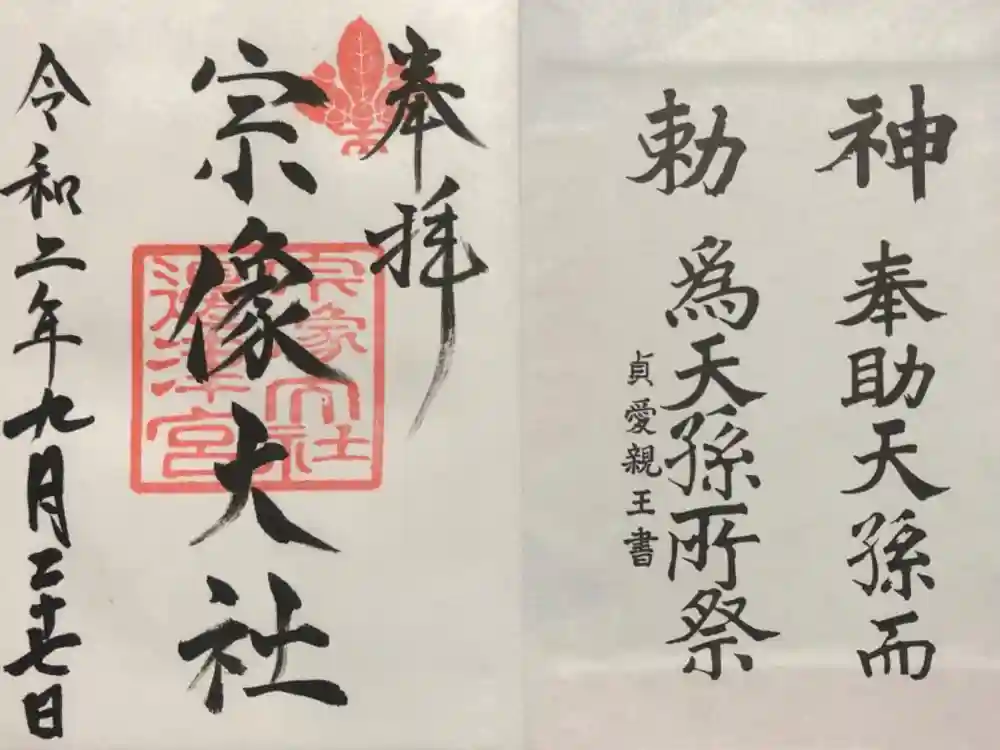 神勅
奉助天孫而
為天孫所祭
貞愛親王書
奉拝
宗像大社
宗像大社
邊津宮
令和二年九月二十七日